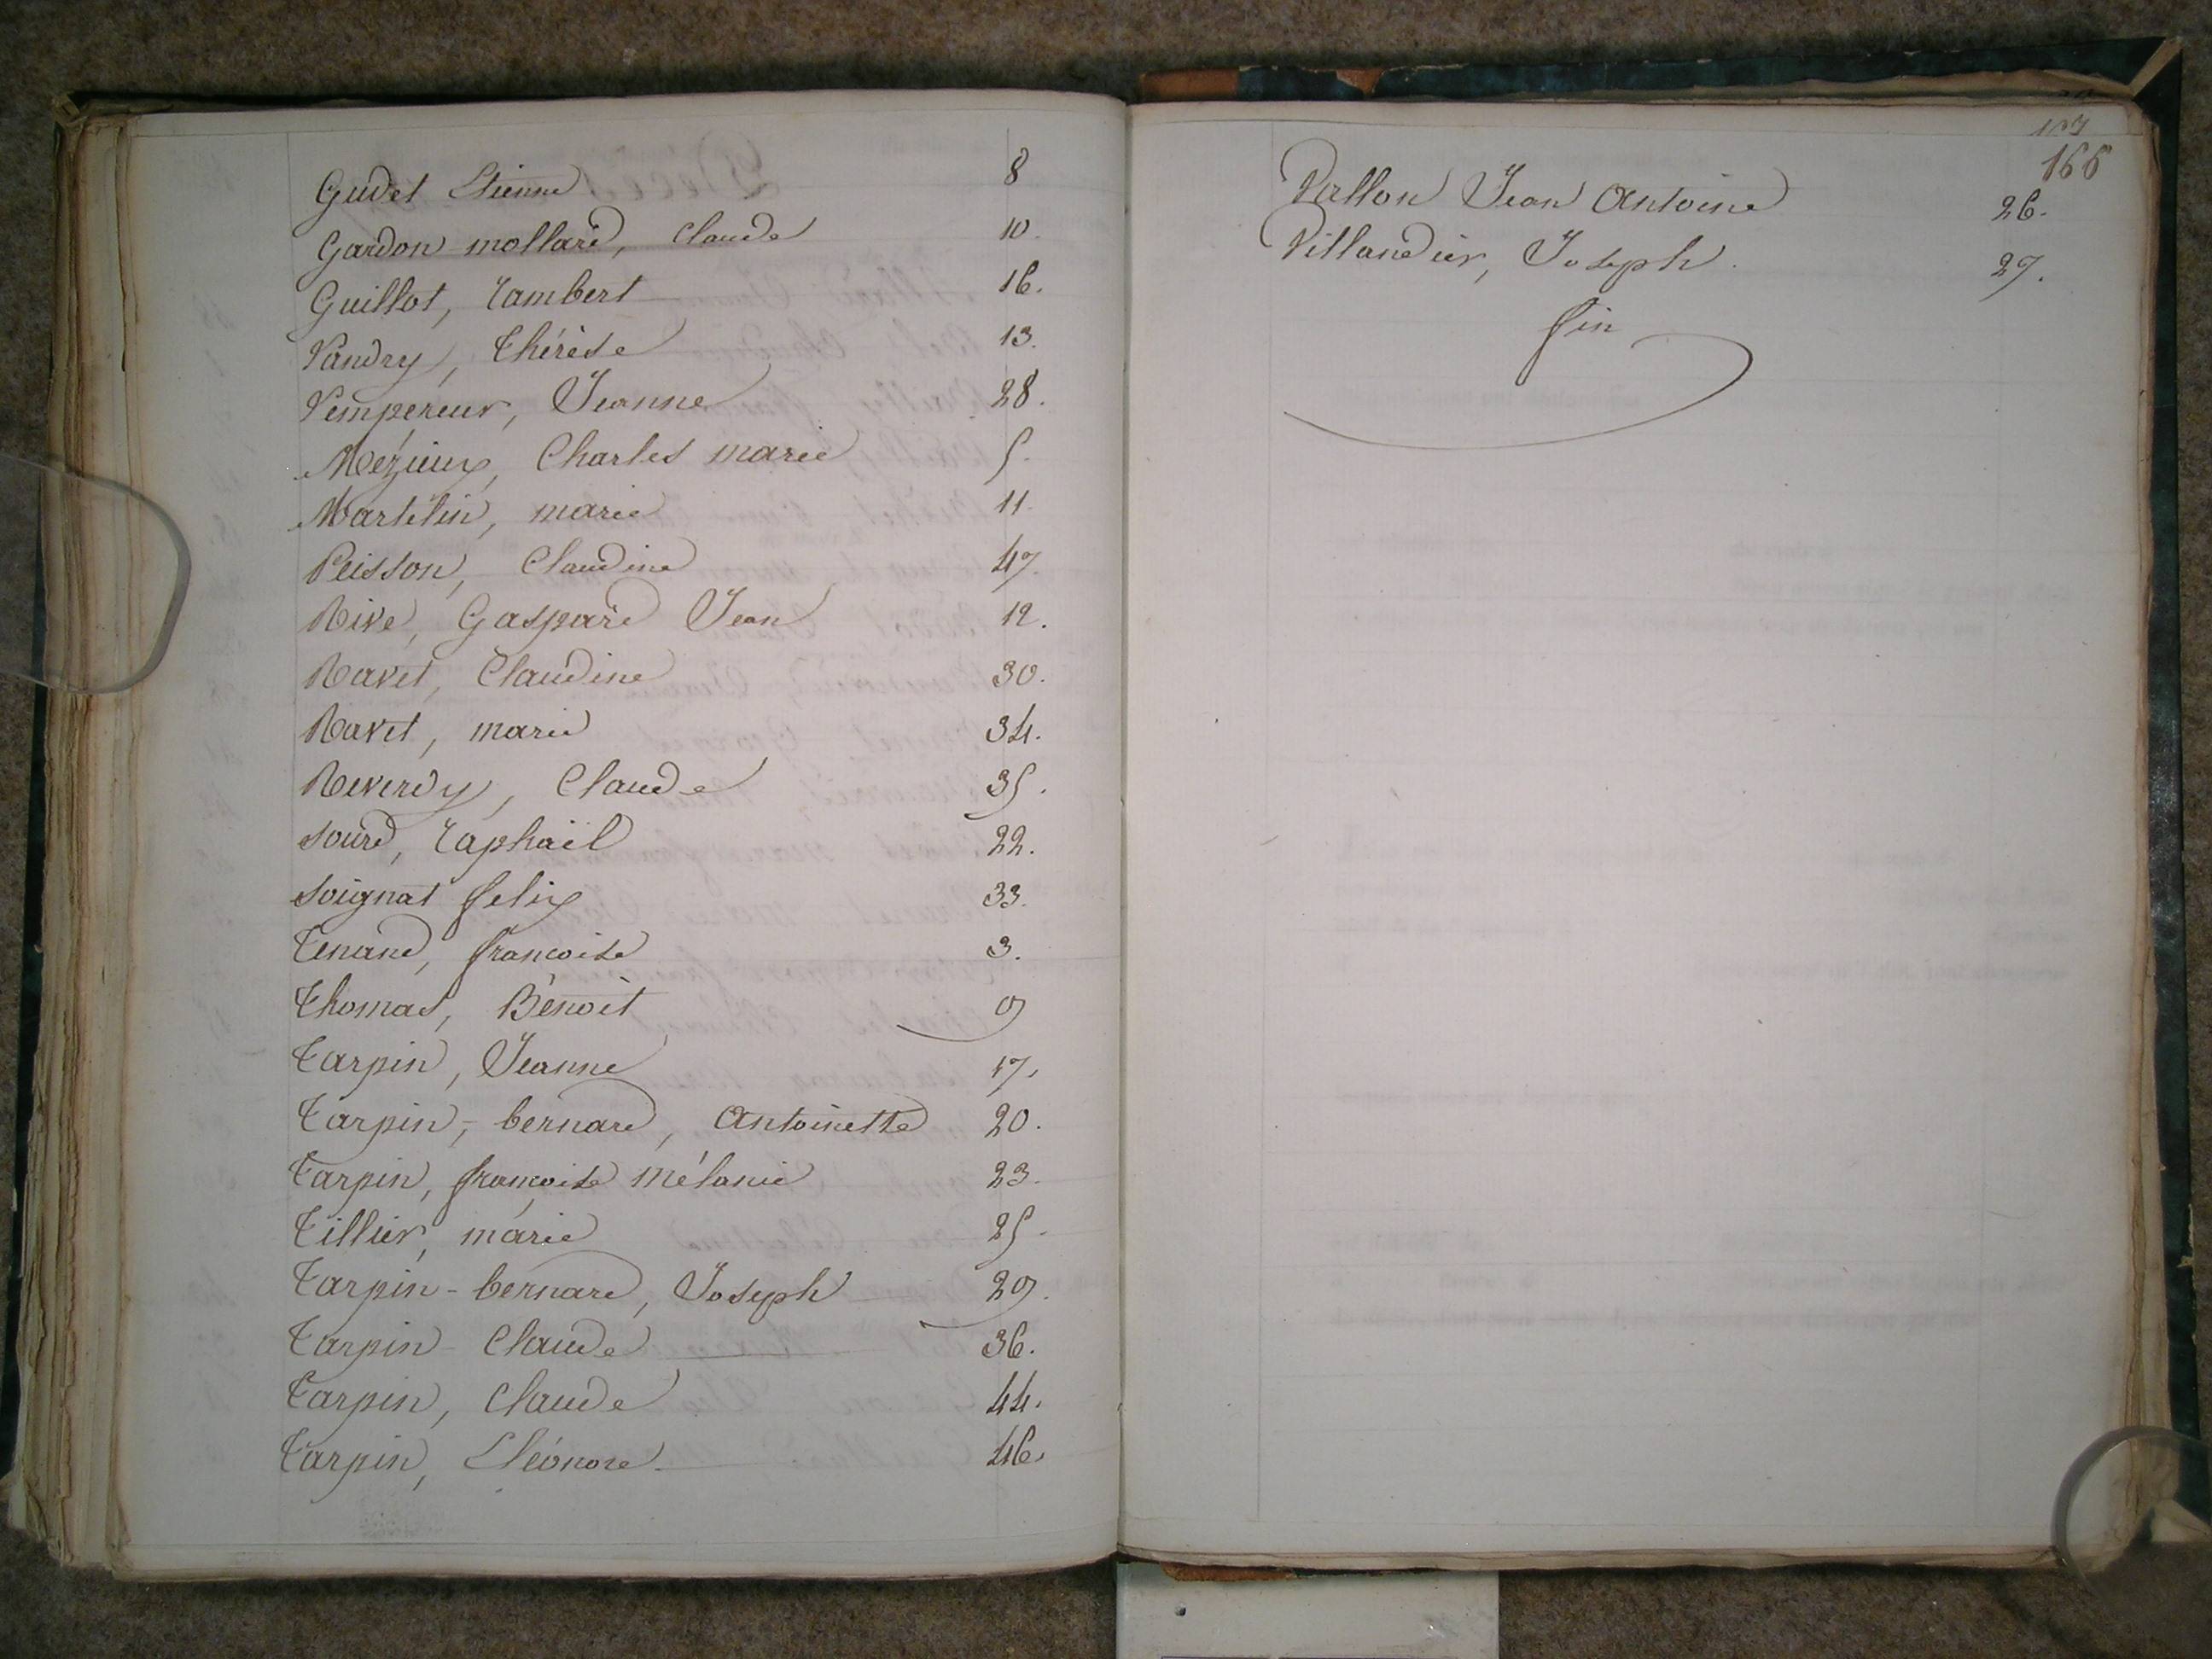 Gudet Etienne 8
Gardon-mollard, Claude 10.
Guillot, Lambert 16.
Landry, Thérèse 13.
Lempereur, Jeanne 28.
Mezieux, Charles marie 5.
Martelin, marie 11.
Peisson, Claudine 47.
Rive, Gaspard Jean 12.
Ravet, Claudine 30.
Ravet, marie 34.
Reverdy, Claude 35.
Sourd, Raphaël 22.
Soignat felix 33.
Tenand, francoise 3.
Thomas, Bénoit 9
Tarpin, Jeanne 17.
Tarpin-bernard, Antoinette 20.
Tarpin, françoise Mélanie 23.
Tillier, marie 25.
Tarpin-bernard, Joseph 29.
Tarpin Claude 36.
Tarpin, Claude 44.
Tarpin, Eléonore. 46.
166
Vallon Jean Antoine 26.
Villandier, Joseph. 27.
fin